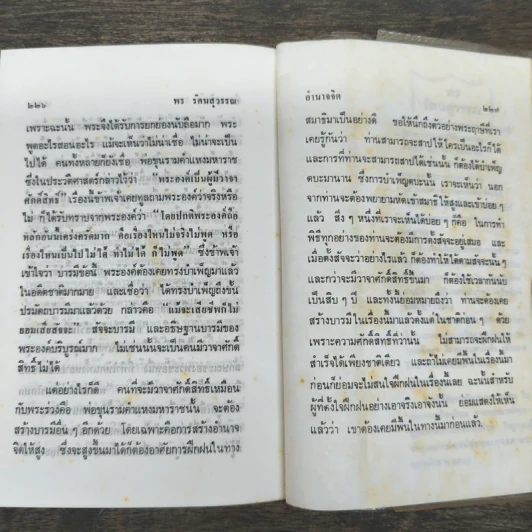 ๒๒๖ พร รัตนสุวรรณ
เพราะฉะนั้น พระจึงได้รับการยกย่องนับถือมาก พระ
พูดอะไรสอนอะไร แม้จะเห็นว่าไม่น่าเชื่อ ไม่น่าจะเป็น
ไปได้ คนทั้งหลายก็ยังเชื่อ พ่อขุนรามคำแหงมหาราช
ซึ่งในประวัติศาสตร์กล่าวไว้ว่า พระองค์เป็นผู้มีวาจา
ศักดิ์สิทธิ์ เรื่องนี้ข้าพเจ้าเคยทูลถามพระองค์ว่าจริงหรือ
ไม่ ก็ได้รับทราบจากพระองค์ว่า "โดยปกติพระองค์ถือ
คือเรื่องไหนไม่จริงไม่พูด หรือ
เรื่องไหนเป็นไปไม่ได้ ทำไม่ได้ ก็ไม่พูด" ซึ่งข้าพเจ้า
เข้าใจว่า บารมีข้อนี้ พระองค์คงเคยทรงบำเพ็ญมาแล้ว
ในอดีตชาติมากมาย และเชื่อว่า ได้ทรงบำเพ็ญถึงขั้น
ปรมัตถบารมีมาแล้วด้วย กล่าวคือ "แม้จะเสียชีพก็ไม่
ยอมเสียสัจจะ" สัจจะบารมี และอธิษฐานบารมีของ
พระองค์บริบูรณ์มาก ไม่เช่นนั้นจะเป็นคนมีวาจาศักดิ์
สิทธิ์ไม่ได้
แต่อย่างไรก็ดี คนที่จะมีวาจาศักดิ์สิทธิ์เหมือน
กับพระร่วงคือ พ่อขุนรามคำแหงมหาราชนั้น จะต้อง
สร้างบารมีอื่น ๆ อีกด้วย โดยเฉพาะคือการสร้างอำนาจ
จิตให้สูง ซึ่งจะสูงขึ้นมาได้ก็ต้องอาศัยการฝึกฝนในทาง
อำนาจจิต ๒๒๗
สมาธิมาเป็นอย่างดี ขอให้นึกถึงตัวอย่างพระฤาษีที่เรา
เคยรู้กันว่า ท่านสามารถจะสาปให้ใครเป็นอะไรก็ได้
และการที่ท่านจะสามารถสาปได้เช่นนั้น ก็ต้องได้บำเพ็ญ
ตบะมานาน ซึ่งการบำเพ็ญตบะนั้น เราจะเห็นว่า นอก
จากท่านจะต้องพยายามหัดเข้าสมาธิให้สูงและเข้าบ่อย ๆ
แล้ว สิ่ง ๆ หนึ่งที่เราจะเห็นได้บ่อย ๆ ก็คือ ในการทำ
พิธีทุกอย่างของท่านจะต้องมีการตั้งสัจจะอยู่เสมอ และ
เมื่อตั้งสัจจะว่าอย่างไรแล้ว ก็ต้องทำให้ได้ตามสัจจะนั้น ๆ
และกว่าจะมีวาจาศักดิ์สิทธิ์ขึ้นมา ก็ต้องใช้เวลากันนับ
เป็นสิบ ๆ ปี และทั้งนี้ย่อมหมายถึงว่า ท่านจะต้องเคย
สร้างบารมีในเรื่องนี้มาแล้วตั้งแต่ในชาติก่อนๆ ด้วย
เพราะความศักดิ์สิทธิ์ที่ว่านั้น ไม่สามารถจะฝึกให้
สำเร็จได้เพียงชาติเดียว และถ้าไม่เคยมีพื้นในเรื่องนี้มา
ก่อนก็ย่อมจะไม่สนใจฝึกฝนในเรื่องนี้เลย ฉะนั้นสำหรับ
ผู้ที่ตั้งใจฝึกฝนอย่างเอาจริงเอาจังนั้น ย่อมแสดงให้เห็น
แล้วว่า เขาต้องเคยมีพื้นในทางนี้มาก่อนแล้ว.